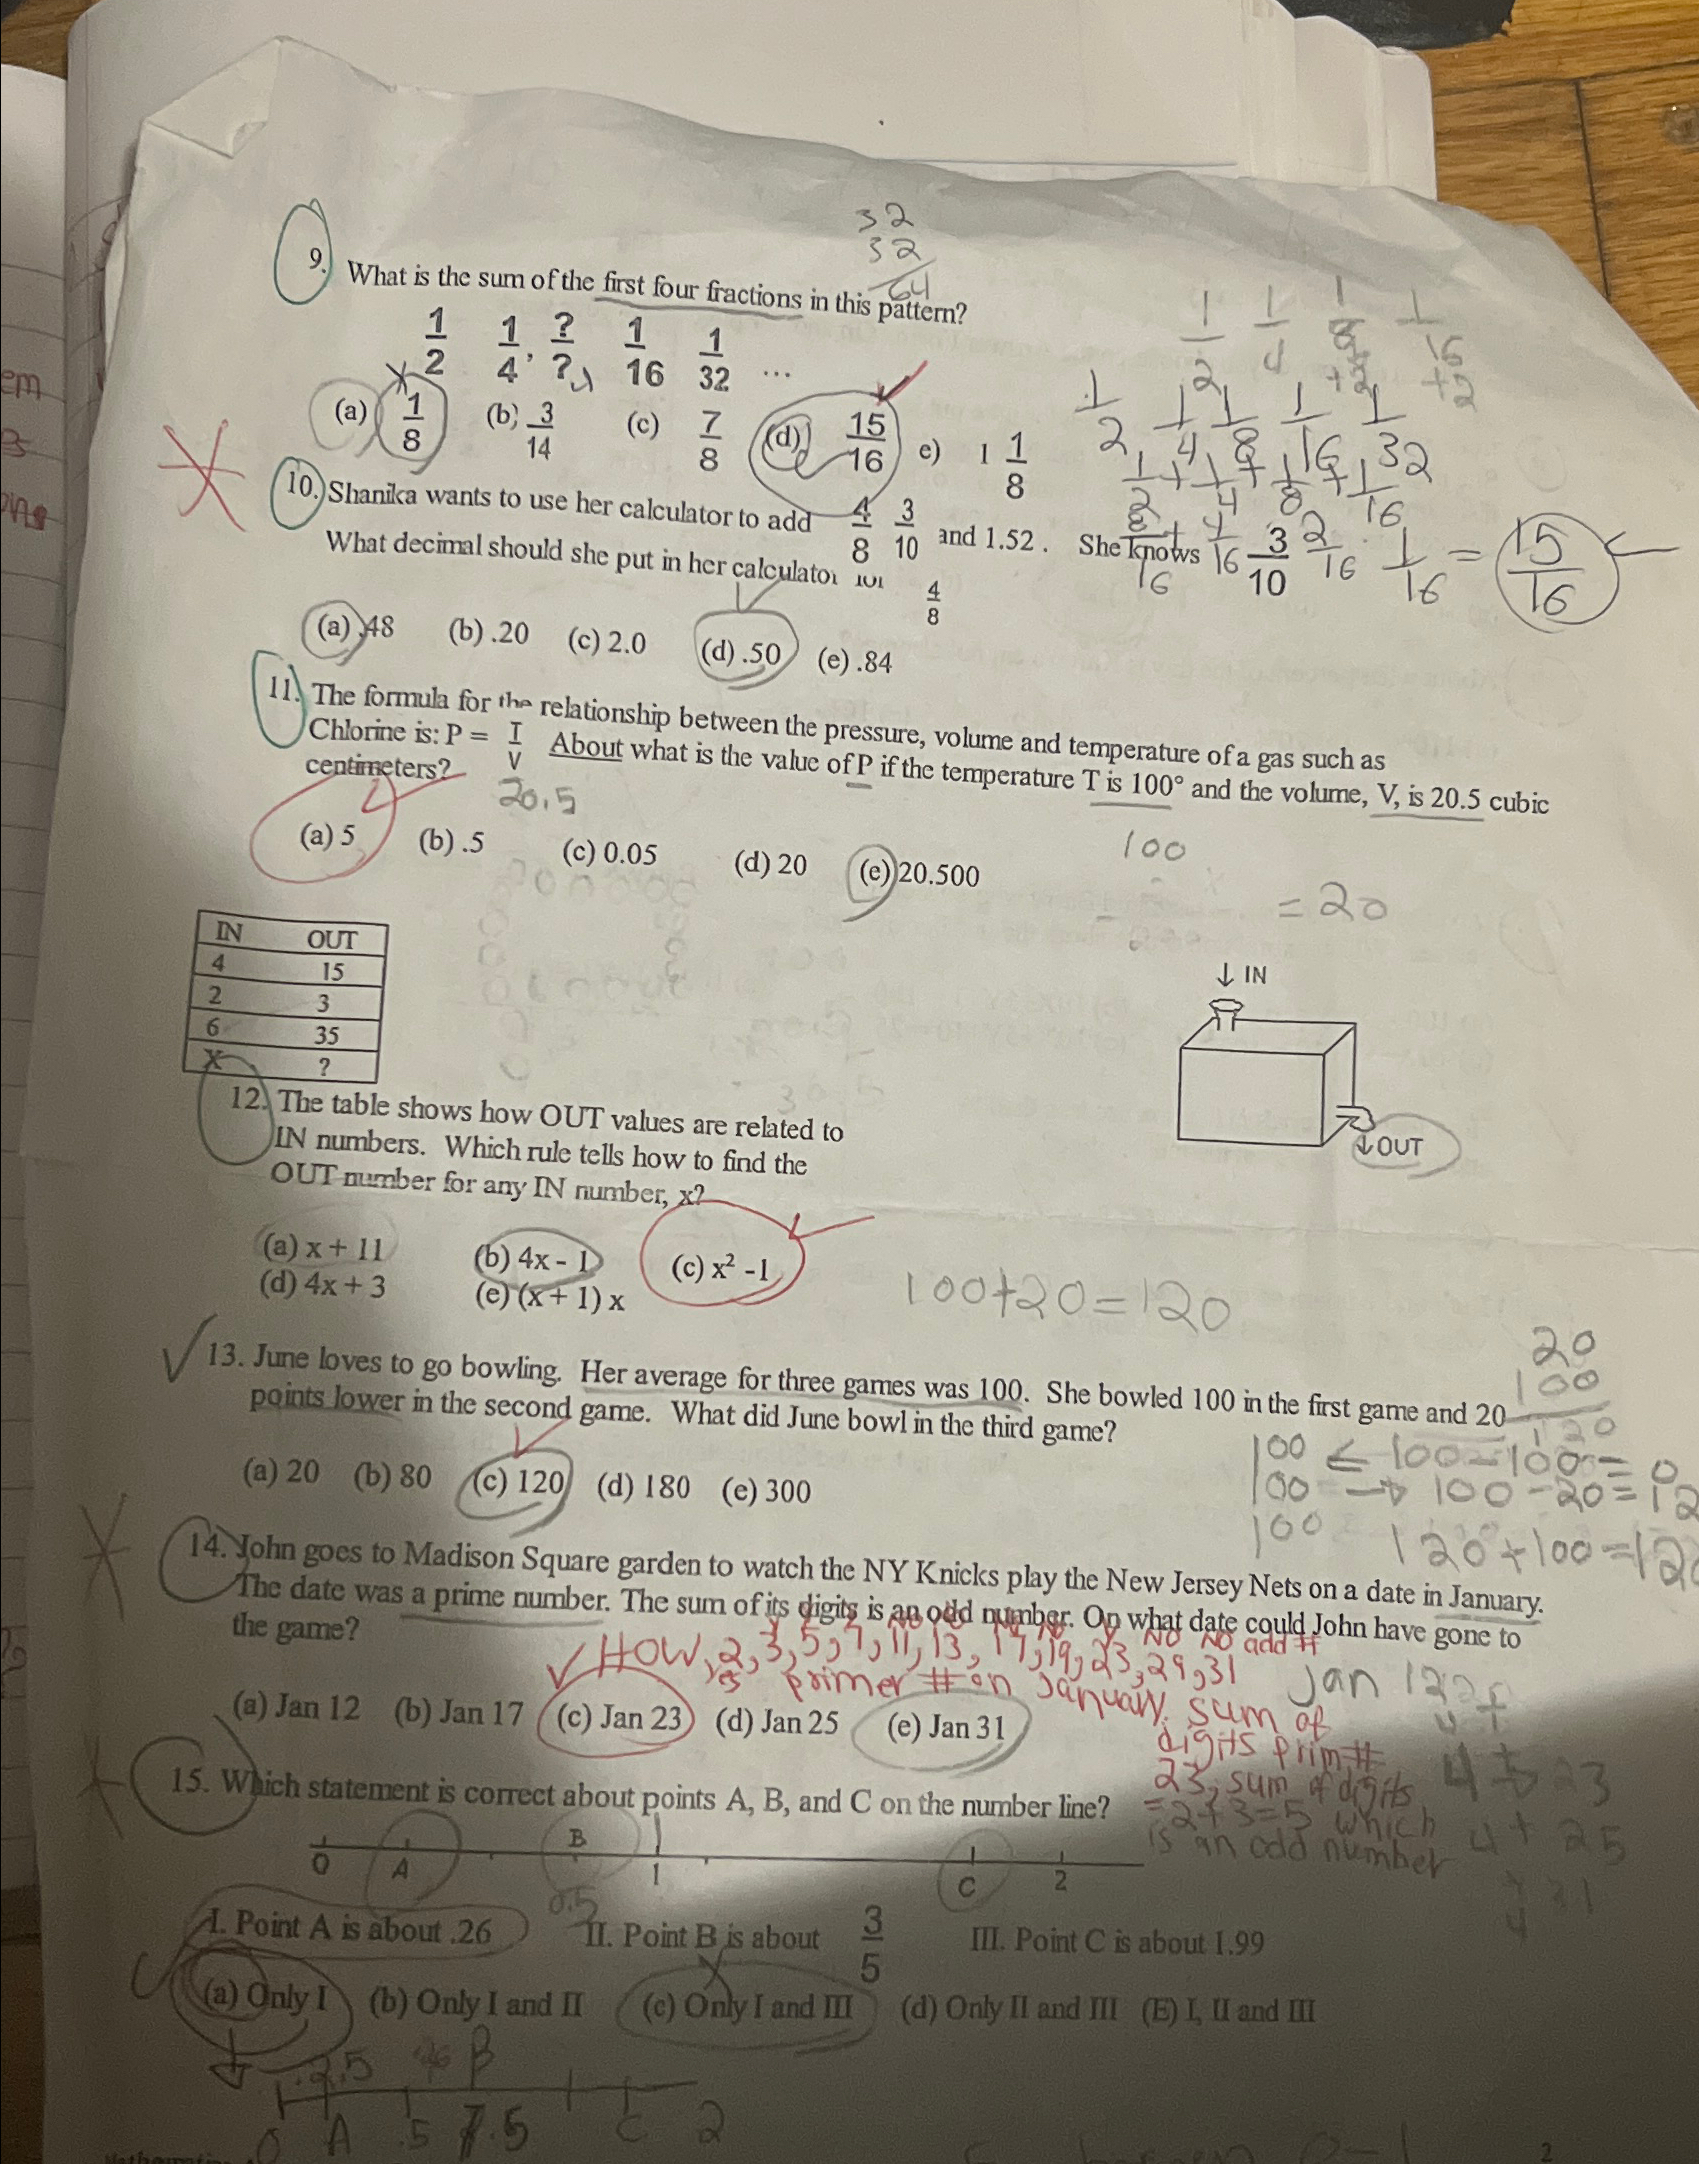 32
32
64
9. What is the sum of the first four fractions in this pattern?
1/2 1/4, ?/? , 1/16 1/32 ...
1/2 1/4 1/8 1/16
+2 +2
(a) 1/8 (b) 3/14 (c) 7/8 (d) 15/16 e) 1 1/8
1/2, 1/4 1/8 1/16 1/32
1/2 + 1/4 + 1/8 + 1/16
8/16 + 4/16 2/16 1/16 = 15/16
10. Shanika wants to use her calculator to add 4/8 3/10 and 1.52. She knows 3/10
What decimal should she put in her calculator for 4/8
(a) .48 (b) .20 (c) 2.0 (d) .50 (e) .84
11. The formula for the relationship between the pressure, volume and temperature of a gas such as
Chlorine is: P = T/V About what is the value of P if the temperature T is 100° and the volume, V, is 20.5 cubic
centimeters?
20.5
100
= 20
(a) 5 (b) .5 (c) 0.05 (d) 20 (e) 20.500
IN OUT
4 15
2 3
6 35
X ?
↓ IN
↓ OUT
12. The table shows how OUT values are related to
IN numbers. Which rule tells how to find the
OUT number for any IN number, x?
(a) x + 11 (b) 4x - 1 (c) x² -1
(d) 4x + 3 (e) (x + 1) x
100+20=120
20
100
120
13. June loves to go bowling. Her average for three games was 100. She bowled 100 in the first game and 20
points lower in the second game. What did June bowl in the third game?
100 ← 100-100=0
100 → 100-20=12
100 120+100=120
(a) 20 (b) 80 (c) 120 (d) 180 (e) 300
14. John goes to Madison Square garden to watch the NY Knicks play the New Jersey Nets on a date in January.
The date was a prime number. The sum of its digits is an odd number. On what date could John have gone to
the game?
HOW, 2, 3, 5, 7, 11, 13, 17, 19, 23, 29, 31
primer # on January. sum of
digits prim #
23, sum of digits
= 2+3=5 which
is an odd number
Jan 12
(a) Jan 12 (b) Jan 17 (c) Jan 23 (d) Jan 25 (e) Jan 31
4+ 23
4+ 25
31
15. Which statement is correct about points A, B, and C on the number line?
0 A B 1 C 2
0.5
I. Point A is about .26 II. Point B is about 3/5 III. Point C is about 1.99
(a) Only I (b) Only I and II (c) Only I and III (d) Only II and III (E) I, II and III
.25 .26 B
0 A .5 7.5 C 2
2